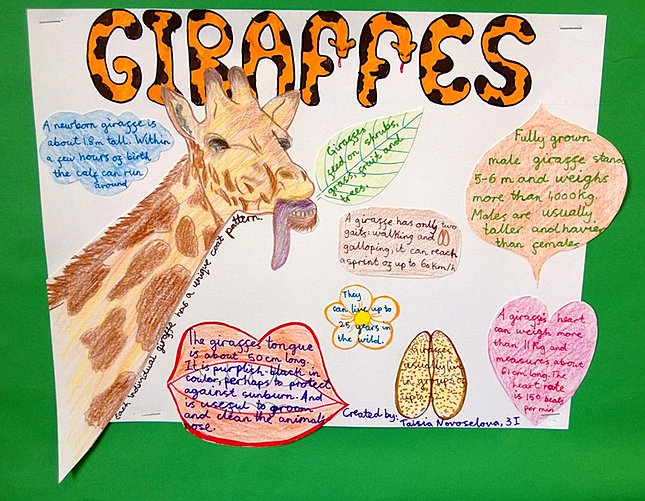 GIRAFFES
A newborn giraffe is
about 1.8m tall. Within
a few hours of birth
the calf can run
around
Giraffes
feed on shrubs,
grass, fruit and
trees.
Fully grown
male giraffe stands
5-6 m and weighs
more than 1,000kg.
Males are usually
taller and havier
than females
A giraffe has only two
gaits: walking and
galloping, it can reach
a sprint of up to 60 km/h
each individual giraffe has a unique coat pattern.
They
can live up to
25 years in
the wild.
The giraffes tongue
is about 50cm long.
It is purplish-black in
coulor, perhaps to protect
against sunburn. And
is useful to groom
and clean the animal's
nose.
Giraffes
usually live
in groups of
up to
A giraffe's heart
can weigh more
than 11Kg and
measures about
61 cm long. The
heart rate
is 150 beats
per min.
Created by:
Taisia Novoselova, 3I